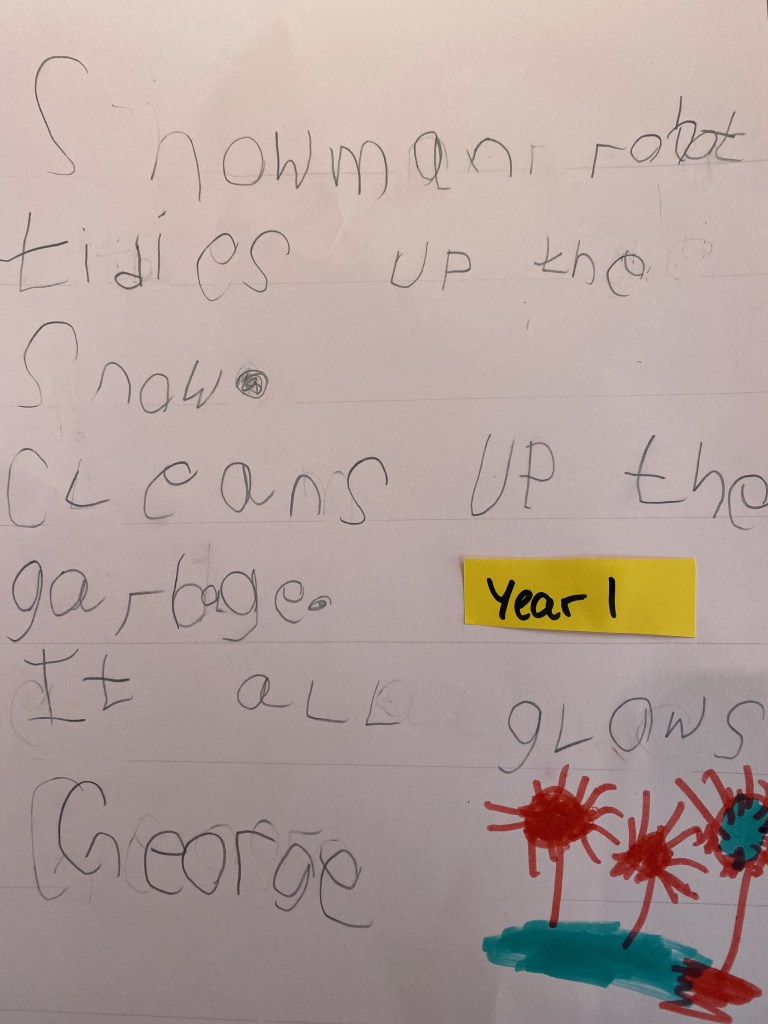 Snowman robot
tidies up the
Snow.
cleans up the
garbage.
Year 1
It all glows
George